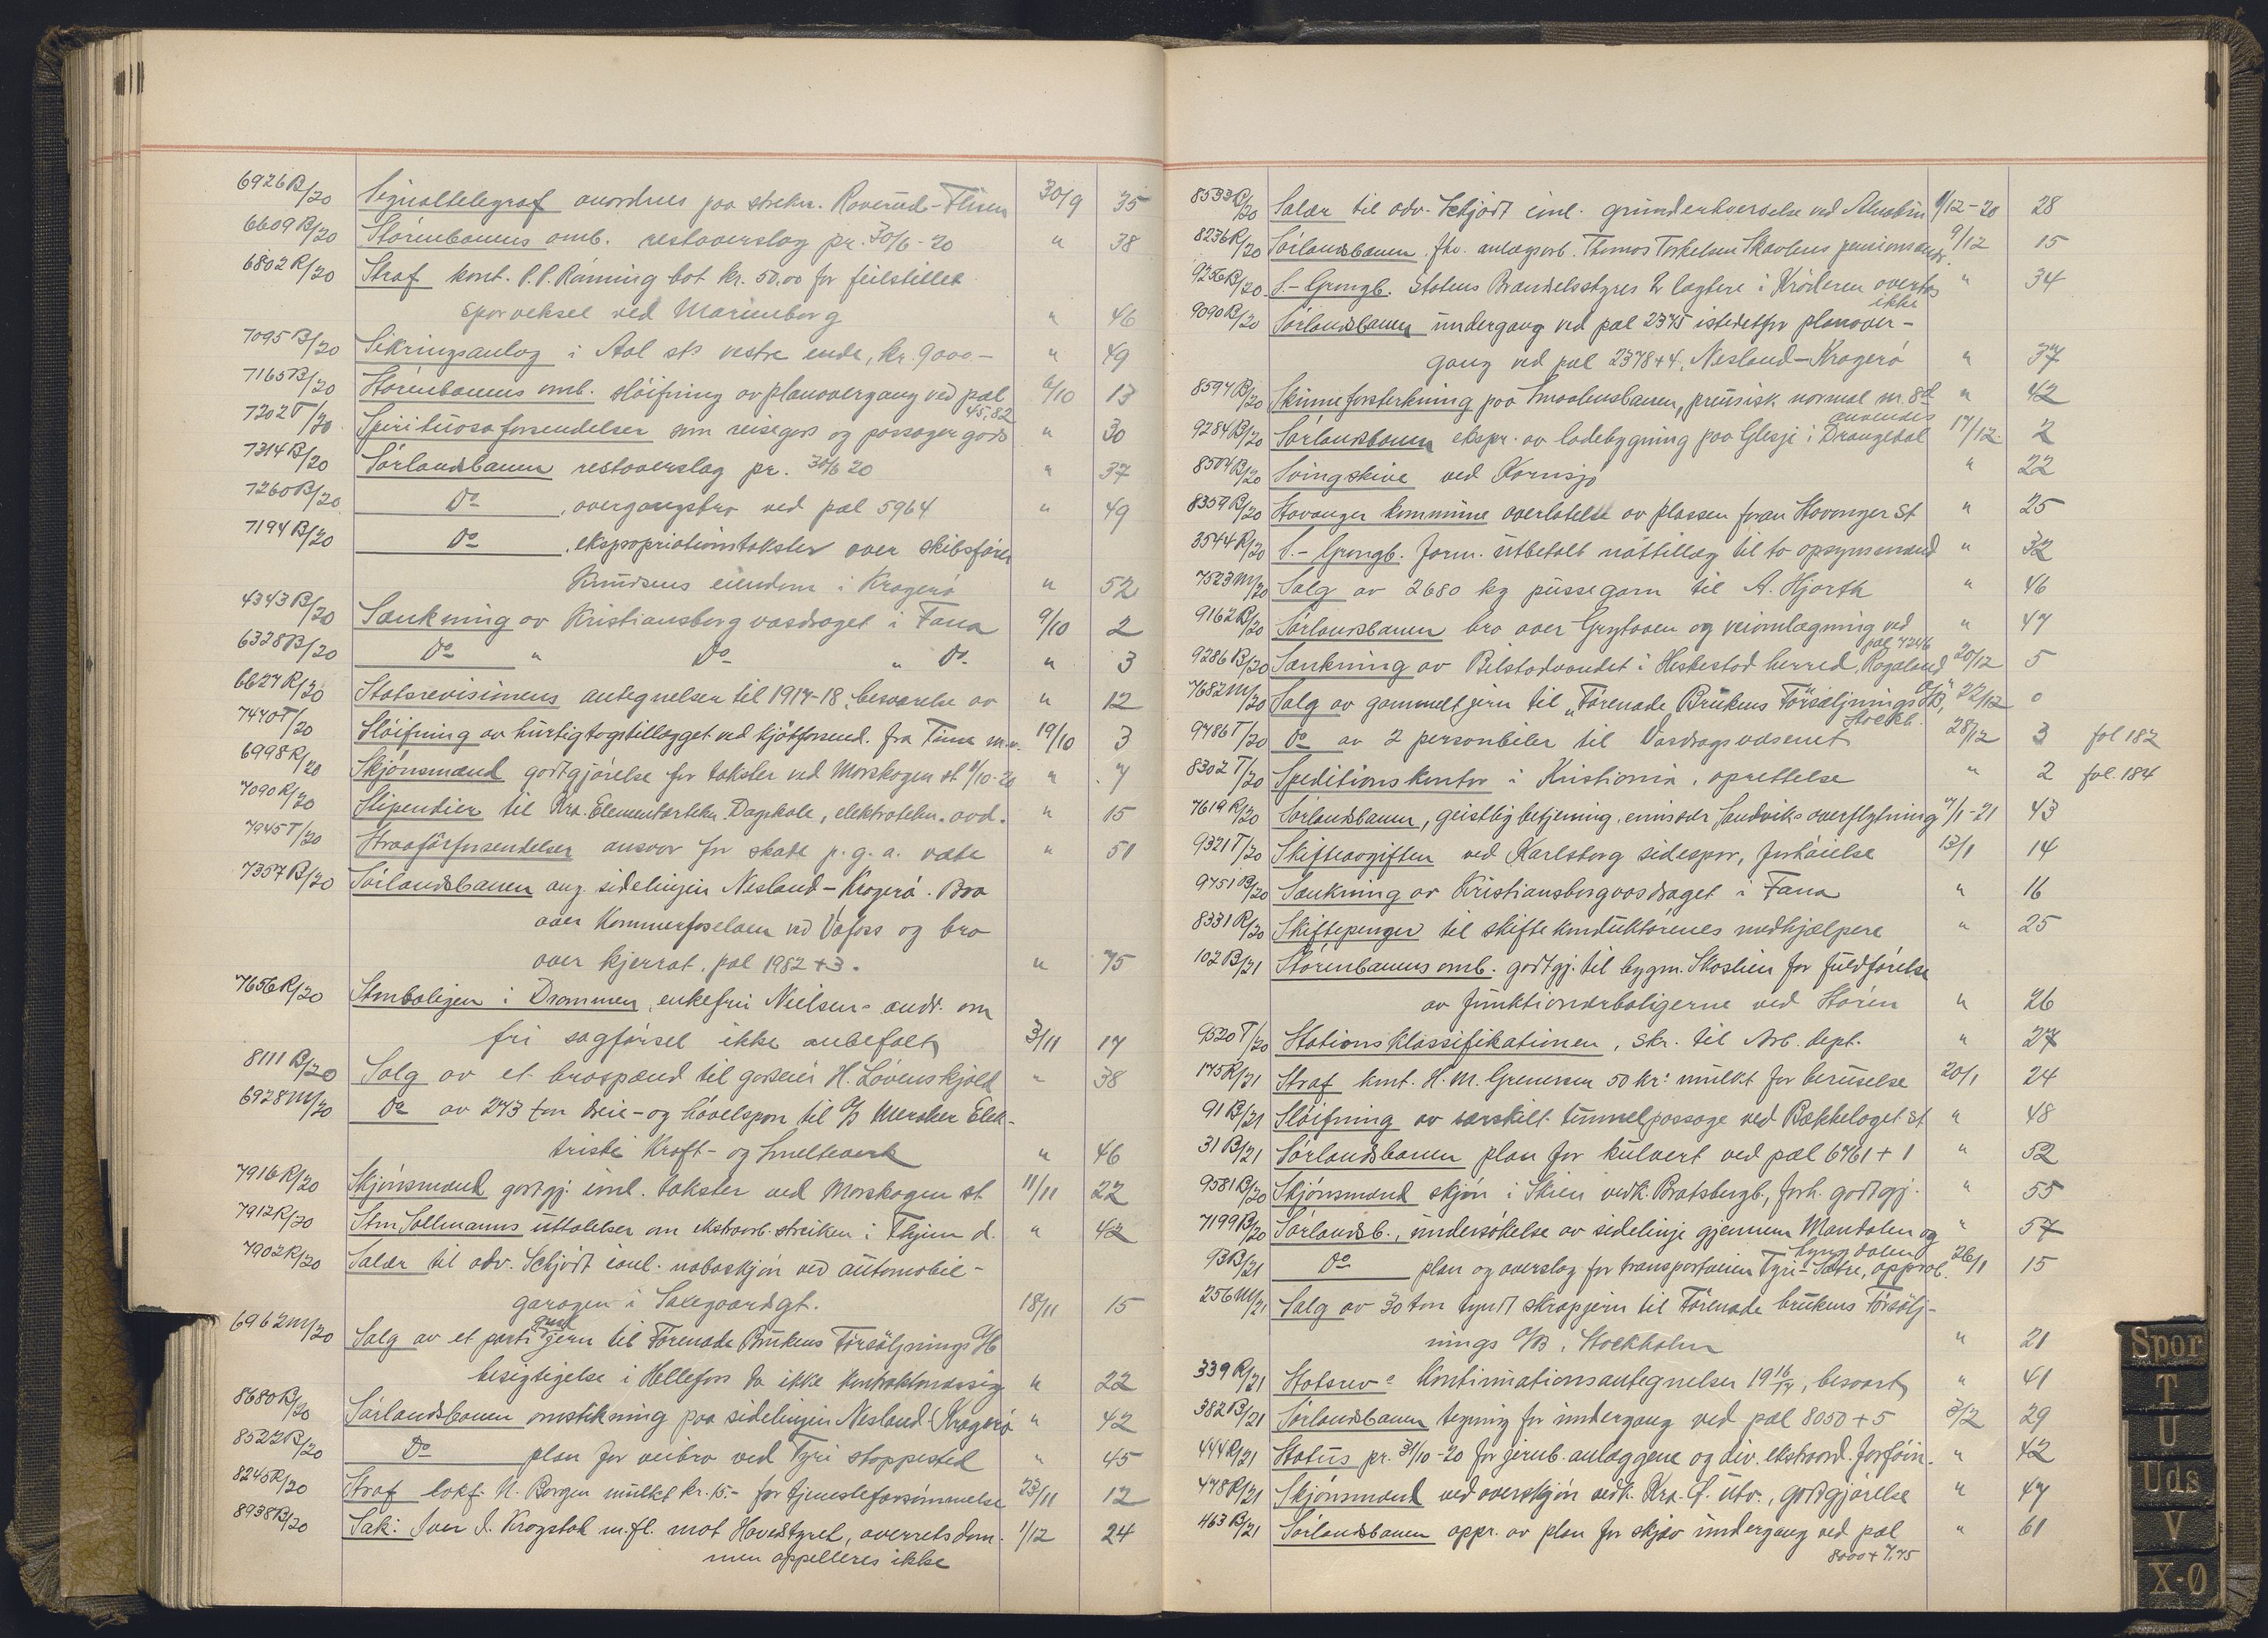 6926 B/20 Signaltelegraf anordnes paa strekn. Roverud-Flisen 30/9 35
6609 B/20 Størenbanens omb. restoverslag pr. 30/6-20 " 38
6802 R/20 Straf kont. P.P. Rønning bot kr. 50.00 for feilstillet
sporveksel ved Marienborg " 46
7095 B/20 Sikringsanlæg i Aal sts vestre ende, kr. 9000- " 49
7165 B/20 Størenbanens omb. sløifning av planovergang ved pæl 6/10 13
45,82
7202 T/20 Spirituosaforsendelser som reisegods og passagergods " 30
7314 B/20 Sørlandsbanen restoverslag pr. 30/6 20 " 37
7260 B/20 Do , overgangsbro ved pæl 5964 " 49
7194 B/20 Do , ekspropriationstakster over skibsfører
Knudsens eiendom i Kragerø " 52
4343 B/20 Sænkning av Kristiansborgvasdraget i Fana 9/10 2
6328 B/20 Do " Do " Do " 3
6627 R/20 Statsrevisionens antegnelser til 1917-18, besvarelse av " 12
7470 T/20 Sløifning av hurtigtogstillægget ved kjøtforsend. fra m.v. 19/10 3
6998 R/20 Skjønsmænd godtgjørelse for takster ved Morskogen st /10-20 " 7
7090 R/20 Stipendier til Kra. Elementærtekn. Dagskole, elektrotekn. avd. " 15
7945 T/20 Straaforforsendelser ansvar for skade p.g.a. væte " 51
7357 B/20 Sørlandsbanen ang. sidelinjen Nesland-Kragerø. Bro
over Kammerfoselven ved Vafoss og bro
over kjerrat. pæl 1982+3. " 75
7656 R/20 Stmboligen i Drammen, enkefru Nielsens andr. om
fri sagførsel ikke anbefalt 3/11 17
8111 B/20 Salg av et brospænd til godseier H. Løvenskjold " 38
6928 M/20 Do av 243 ton dreie- og høvelspon til A/S Meraker Elek-
triske Kraft- og Smelteverk " 46
7916 R/20 Skjønsmænd godtgj. i anl. takster ved Morskogen st 11/11 22
7912 R/20 Stm Sollmanns uttalelser om ekstraarb. streiken i Thjem d. " 42
7902 R/20 Salær til adv. Schjødt i anl. naboskjøn ved automobil-
garagen i Sakegaardsgt. 18/11 15
6962 M/20 Salg av et parti jern til Förenade Brukens Försäljnings A/B
besigtigelse i Hellefors da ikke kontraktmæssig " 22
8680 B/20 Sørlandsbanen omstikning paa sidelinjen Nesland-Kragerø " 42
8522 B/20 Do plan for veibro ved Tyri stoppested " 45
8245 R/20 Straf lokf. N. Borgen mulkt kr. 15.- for tjenesteforsømmelse 23/11 12
8938 B/20 Sak: Iver I. Krogstad m.fl. mot Hovedstyret, overretsdom- 1/12 24
men appelleres ikke
8533 R/20 Salær til adv. Schjødt i anl. grunderhvervelse ved Alnabru 1/12-20 28
8236 R/20 Sørlandsbanen. fhv. anlægsarb. Thomas Torkelsen Skavlens pensionsandr. 9/12 15
9256 B/20 S.-Grongb. Statens Brændselsstyres lagtere i Krøderen overtas " 34
ikke
9090 B/20 Sørlandsbanen undergang ved pæl 2375 istedetfor planover-
gang ved pæl 2378+4, Nesland-Kragerø " 37
8594 B/20 Skinneforsterkning paa Smaalensbanen, preusisk normal nr. 8d " 42
anvendes
9284 B/20 Sørlandsbanen ekspr. av ladebygning paa Glesje i Drangedal 17/12 2
8504 B/20 Svingskive ved Kornsjø " 22
8359 B/20 Stavanger kommune overlatelse av plassen foran Stavanger st " 25
3544 R/20 S.-Grongb. form. utbetalt nattillæg til to opsynsmænd " 32
7523 M/20 Salg av 2680 kg pussegarn til A. Hjorth " 46
9162 B/20 Sørlandsbanen bro over Grytaaen og veiomlægning ved " 47
pæl 4246
9286 B/20 Sænkning av Bilstadvandet i Heskestad herred, Rogaland 20/12 5
7682 M/20 Salg av gammelt jern til „Förenade Brukens Försäljnings A/B", 22/12 0
Stockh.
9486 T/20 Do av 2 personbiler til Vasdragsvæsenet 28/12 3 fol 182
8302 T/20 Speditionskontor i Kristiania, oprettelse " 2 fol. 184
7619 R/20 Sørlandsbanen, geistlig betjening, emissær Sandviks overflytning 7/1-21 43
9321 T/20 Skifteavgiften ved Karlsborg sidespor, forhøielse 13/1 14
9751 B/20 Sænkning av Kristiansborgvasdraget i Fana " 16
8331 R/20 Skiftepenger til skiftekonduktørenes medhjælpere " 25
102 B/21 Størenbanens omb. godtgj. til bygm. Skoslien for fuldførelse
av funktionærboligerne ved Støren " 26
9520 T/20 Stationsklassifikationen, skr. til Arb. dept. " 27
175 R/21 Straf knt. H.M. Grenersen 50 kr: mulkt for beruselse 20/1 24
91 B/21 Sløifning av særskilt tunnelpassage ved Bækkelaget st " 48
31 B/21 Sørlandsbanen plan for kulvert ved pæl 6761+1 " 52
9581 B/20 Skjønsmænd skjøn i Skien vedk. Bratsbergb., forh. godtgj. " 55
7199 B/20 Sørlandsb., undersøkelse av sidelinje gjennem Mandalen og " 57
Lyngdalen
93 B/21 Do plan og overslag for transportveien Tyri-Sætre, approb. 26/1 15
256 M/21 Salg av 30 ton tyndt skrapjern til Förenade brukens Försälj-
nings A/B, Stockholm " 21
339 R/21 Statsrevs Kontinuationsantegnelser 19 16/17, besvart " 41
382 B/21 Sørlandsbanen tegning for undergang ved pæl 8050+5 3/2 29
444 R/21 Status pr. 31/10-20 for jernb. anlæggene og div. ekstraord. forføin. " 42
478 R/21 Skjønsmænd ved overskjøn vedk. Kra. Ø. utv., godtgjørelse " 47
463 B/21 Sørlandsbanen appr. av plan for skjæv undergang ved pæl " 61
8000+7.75
Spor
T
U
Uds
V
X-Ø